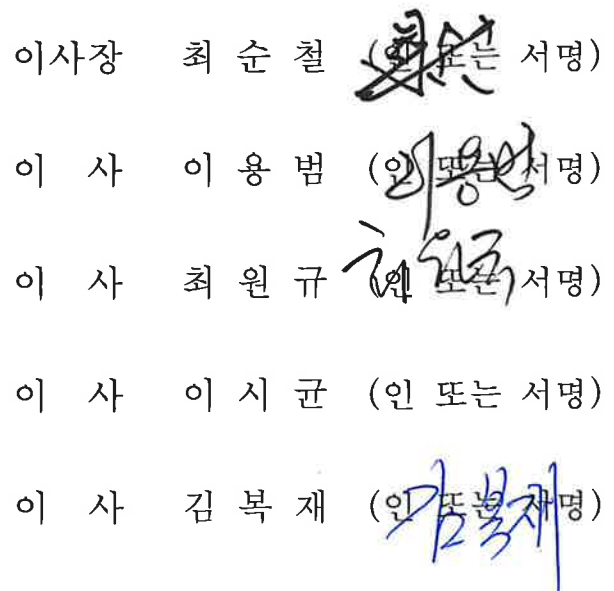 이사장 최 순 철 (인 또는 서명)
이 사 이 용 범 (인 또는 서명) 이용범
이 사 최 원 규 (인 또는 서명)
이 사 이 시 균 (인 또는 서명)
이 사 김 복 재 (인 또는 서명) 김복재